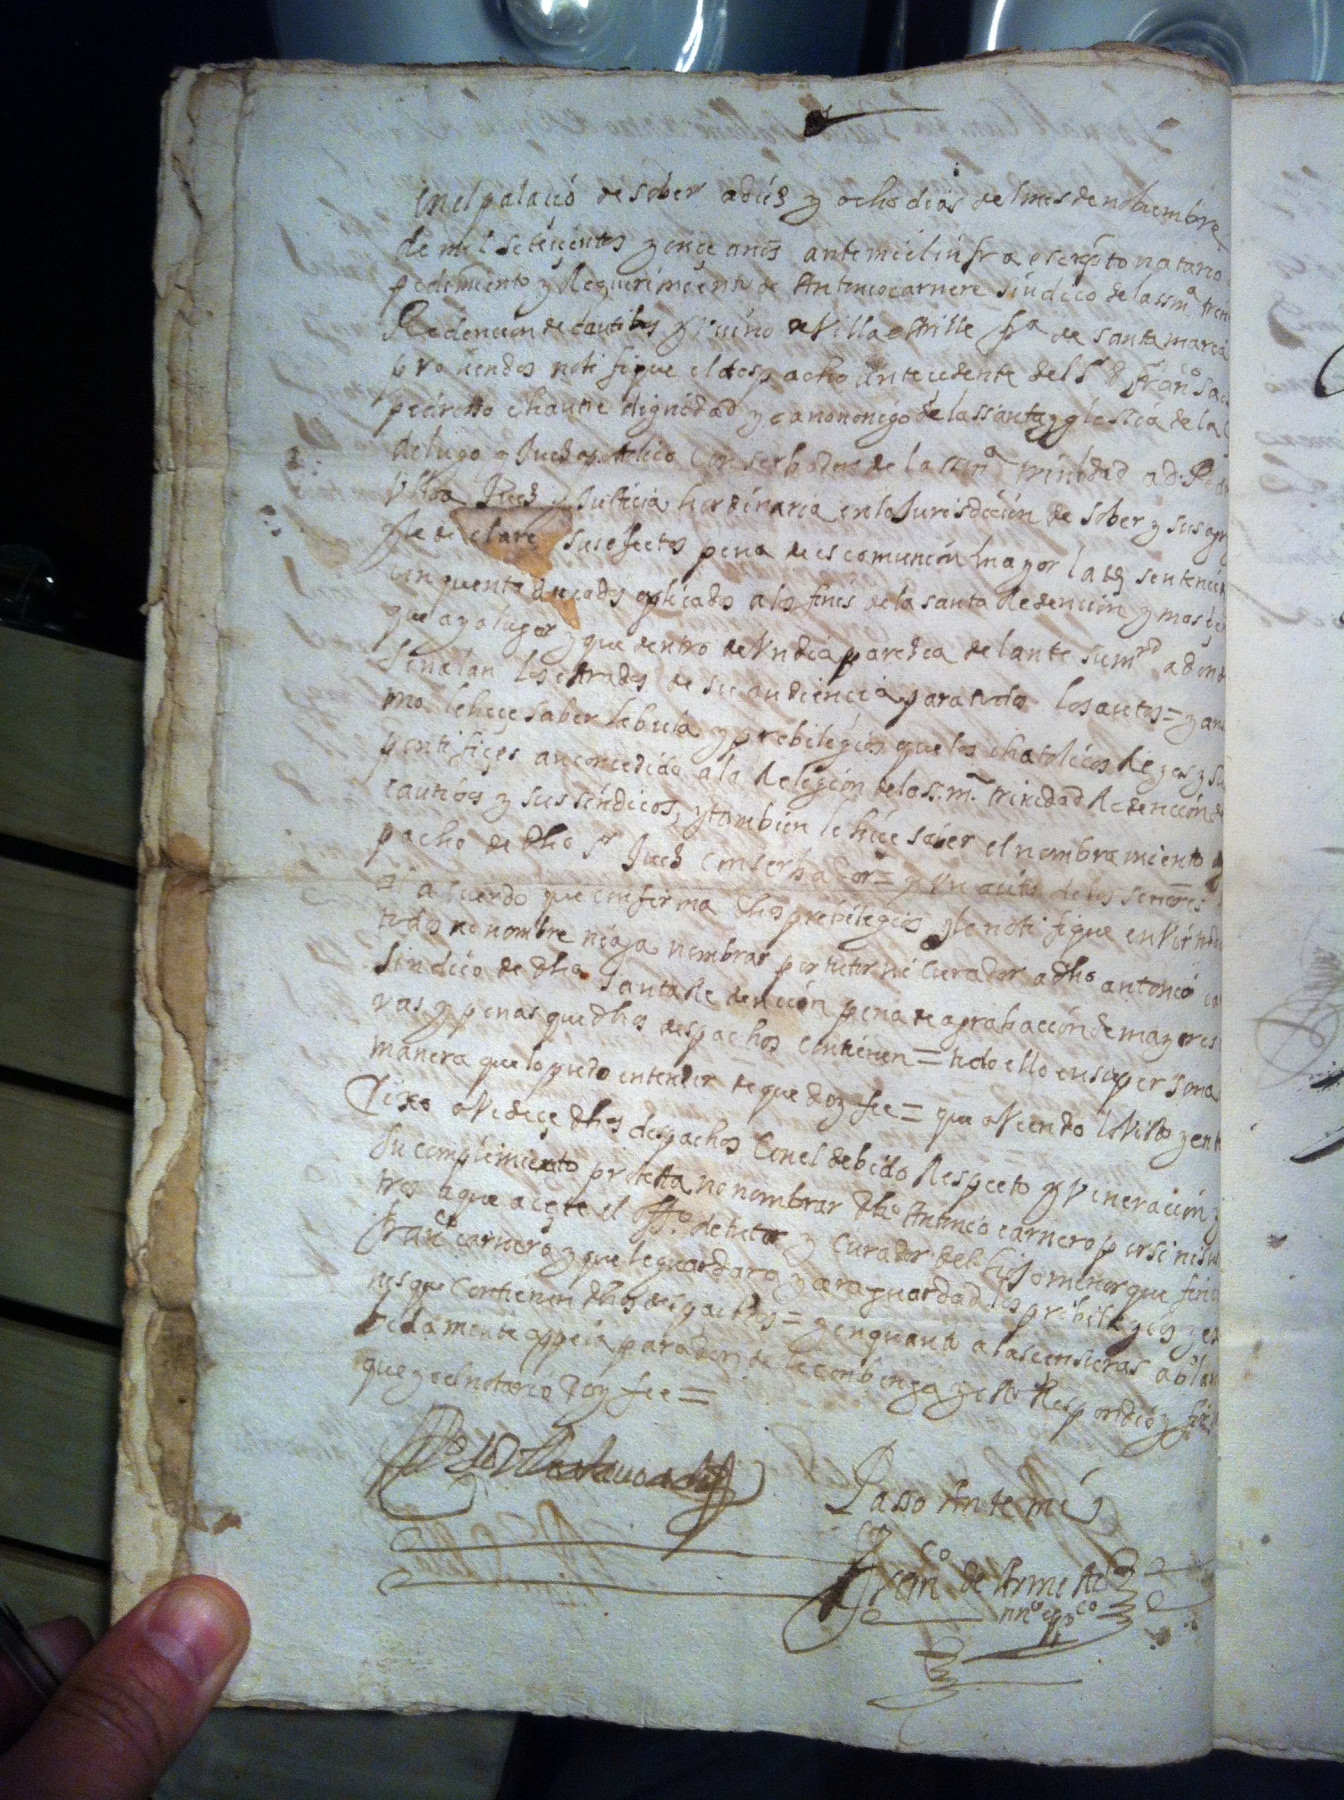 En el palació de sober adiéz y ocho días del mes de nobiembre
de mil seteçientos y onçe anis ante mi el infra escripto notario
pedimiento y Requerimiento de Antonio carnere síndico de la ssma trini
Redención de Cautibos y veuino de Villaestrille fra de santa maria
probiendos notifique el despacho Antecedente del Sr D franco
pedrosso chantre dignidad y canononigo de la ssanta yglessia de la
de lugo y Juez apostolico Conserbador de la ssma trinidad a d. Pedro
Ulloa Juez y Justicia hordinaria en la Jurisdición de sober y sus agr
se declare sus efectos pena de escomunión mayor late sentencia
cinquenta ducados aplicados a los finis de la santa Redención y mas
que aya lugar y que dentro de Un día parezca delante su mrd adonde
senalan los estrados de su audiencia para todos los autos = y ansi
mo le hiçe saber la bula y prebilegios que los chatolicos Reyes y su
pontifiçes an concedido a la Religión de la s.ma trinidad Redención de
cautibos y sus síndicos, y también le hiçe saber el nombramiento
pacho de dho sr Juez Conserbador = y Un auto de los senores
acuerdo que confirma dhos prebilegios y le notifique en Virtud de
todos no nombre ni aga nombrar por tutor ni Curador a dho antonio ca
Sindico de dha santa Redención pena de agrabacción de mayores
ras y penas que dhos despachos contienen = todo ello en su persona
manera que lo pudo entender de que doy fee = que oViendo lo Visto y ent
Dixo oVedeçe dhos despachos Con el debido Respecto y Veneración y
su complimiento protesta no nombrar dho Antonio carnero por si ni su
tros a que açete el offo de tutor y Curador del hijo menor que finco
franco carnero y que le guardara y ara guardad los prebilegios y es
nes que Contienen dhos despachos = y en quanto a las censuras abla
bedamente appela para donde le conbenga y esto Respondió y firmó
que yo el notario doy fee =
Passo Ante mi
Franco de Armesto
nno appco